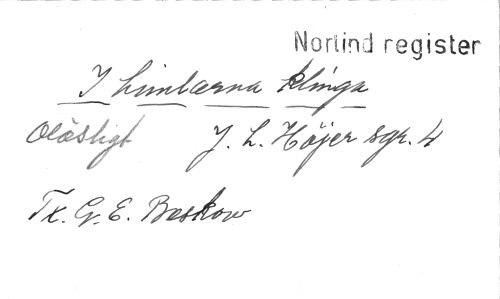 Norlind register
I himlarna klinga
Oläsligt J. L. Höjer sgr. 4
Tx. G. E. Beskow